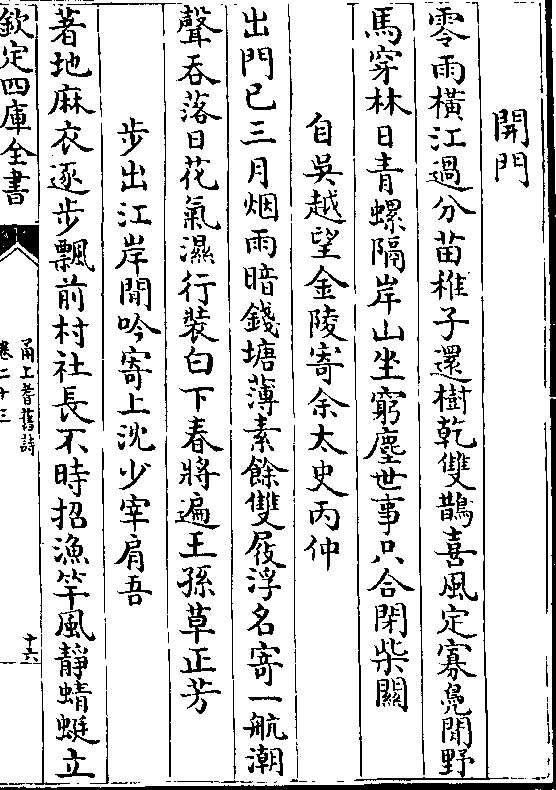 開門
零雨橫江過分苗稚子還樹乾雙鵲喜風定寡鳧閒野
馬穿林日青螺隔岸山坐窮塵世事只合閉柴關
自吳越望金陵寄余太史丙仲
出門已三月烟雨暗錢塘薄素餘雙屐浮名寄一航潮
聲吞落日花氣濕行裝白下春將遍王孫草正芳
步出江岸閒吟寄上沈少宰肩吾
著地麻衣逐步飄前村社長不時招漁竿風靜蜻蜓立
欽定四庫全書
甬上耆舊詩
卷二十三
十六